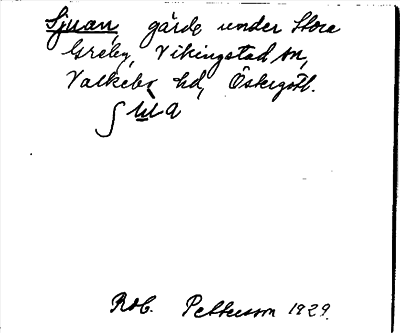 Sjuan, gärde under Stora
Greby, Vikingstad sn,
Valkebo hd, Östergötl.
Rob. Pettersson 1929.